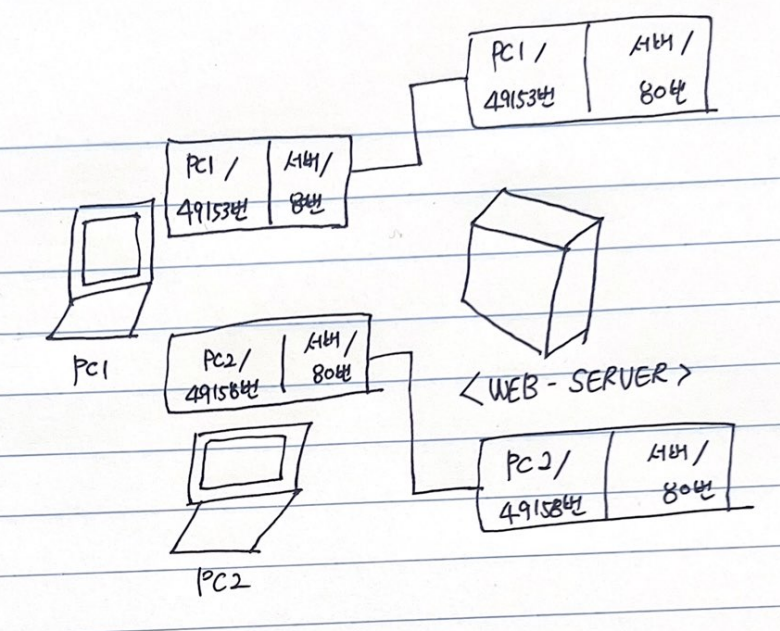 PC1 / 서버/
49153번 80번
PC1 / 서버/
49153번 8번
PC1
PC2/ 서버/
49156번 80번
<WEB-SERVER>
PC2/ 서버/
49158번 80번
PC2